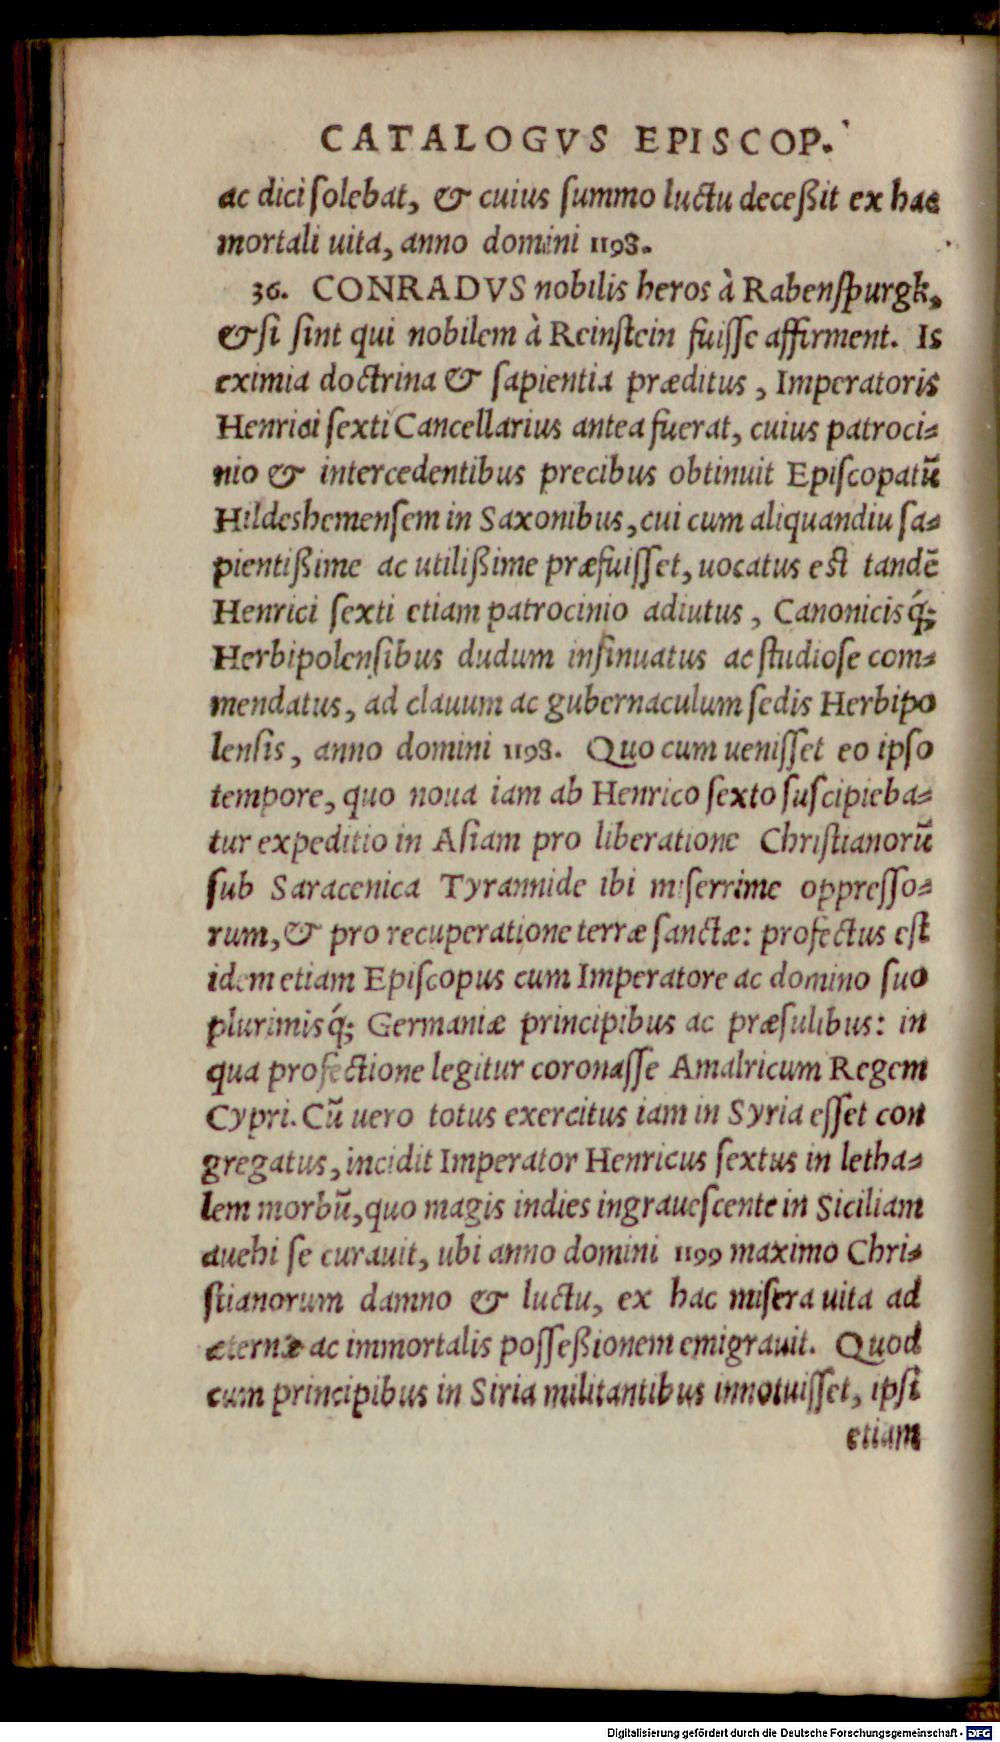 CATALOGVS EPISCOP.
ac dici solebat, & cuius summo luctu deceßit ex hac
mortali uita, anno domini 1198.
36. CONRADVS nobilis heros à Rabenspurgk,
& si sint qui nobilem à Reinstein fuisse affirment. Is
eximia doctrina & sapientia præditus, Imperatoris
Henrici sexti Cancellarius antea fuerat, cuius patroci-
nio & intercedentibus precibus obtinuit Episcopatũ
Hildeshemensem in Saxonibus, cui cum aliquandiu sa-
pientißime ac utilißime præfuisset, uocatus est tandẽ
Henrici sexti etiam patrocinio adiutus, Canonicisq́;
Herbipolensibus dudum insinuatus ac studiose com-
mendatus, ad clauum ac gubernaculum sedis Herbipo
lensis, anno domini 1198. Quo cum uenisset eo ipso
tempore, quo noua iam ab Henrico sexto suscipieba-
tur expeditio in Asiam pro liberatione Christianorũ
sub Saracenica Tyrannide ibi miserrime oppresso-
rum, & pro recuperatione terræ sanctæ: profectus est
idem etiam Episcopus cum Imperatore ac domino suo
plurimisq́; Germaniæ principibus ac præsulibus: in
qua profectione legitur coronasse Amalricum Regem
Cypri. Cũ uero totus exercitus iam in Syria esset con
gregatus, incidit Imperator Henricus sextus in letha-
lem morbũ, quo magis indies ingrauescente in Siciliam
auehi se curauit, ubi anno domini 1199 maximo Chri-
stianorum damno & luctu, ex hac misera uita ad
æternæ ac immortalis posseßionem emigrauit. Quod
cum principibus in Siria militantibus innotuisset, ipsi
etiam
Digitalisierung gefördert durch die Deutsche Forschungsgemeinschaft - DFG